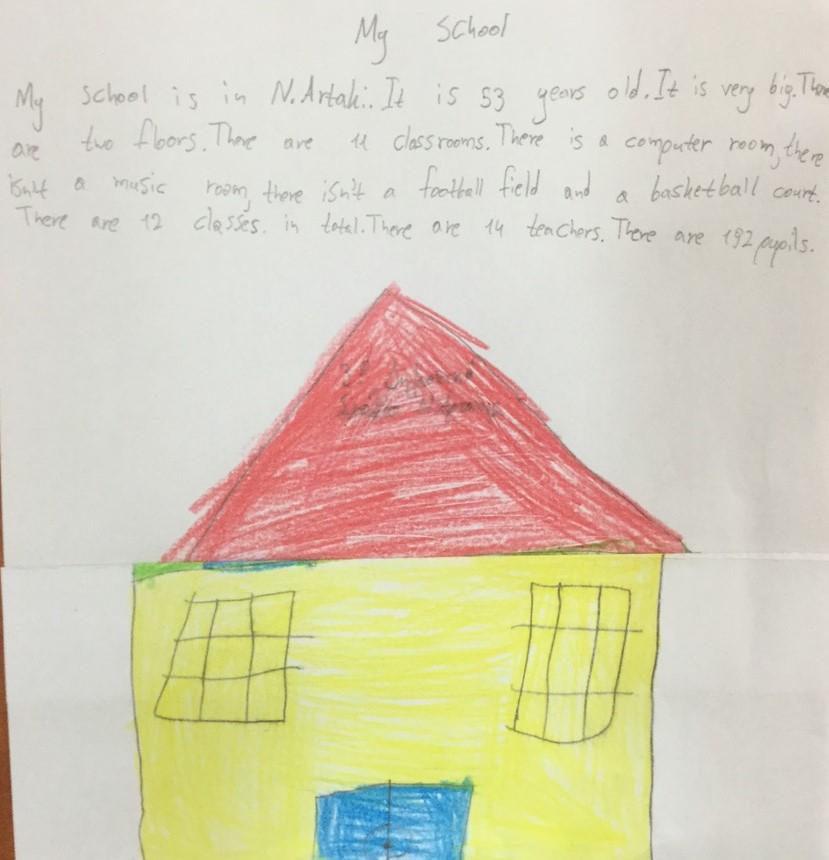 My School
My school is in N. Artaki. It is 53 years old. It is very big. There
are two floors. There are 11 classrooms. There is a computer room, there
isn't a music room, there isn't a football field and a basketball court.
There are 12 classes. in total. There are 14 teachers. There are 192 pupils.